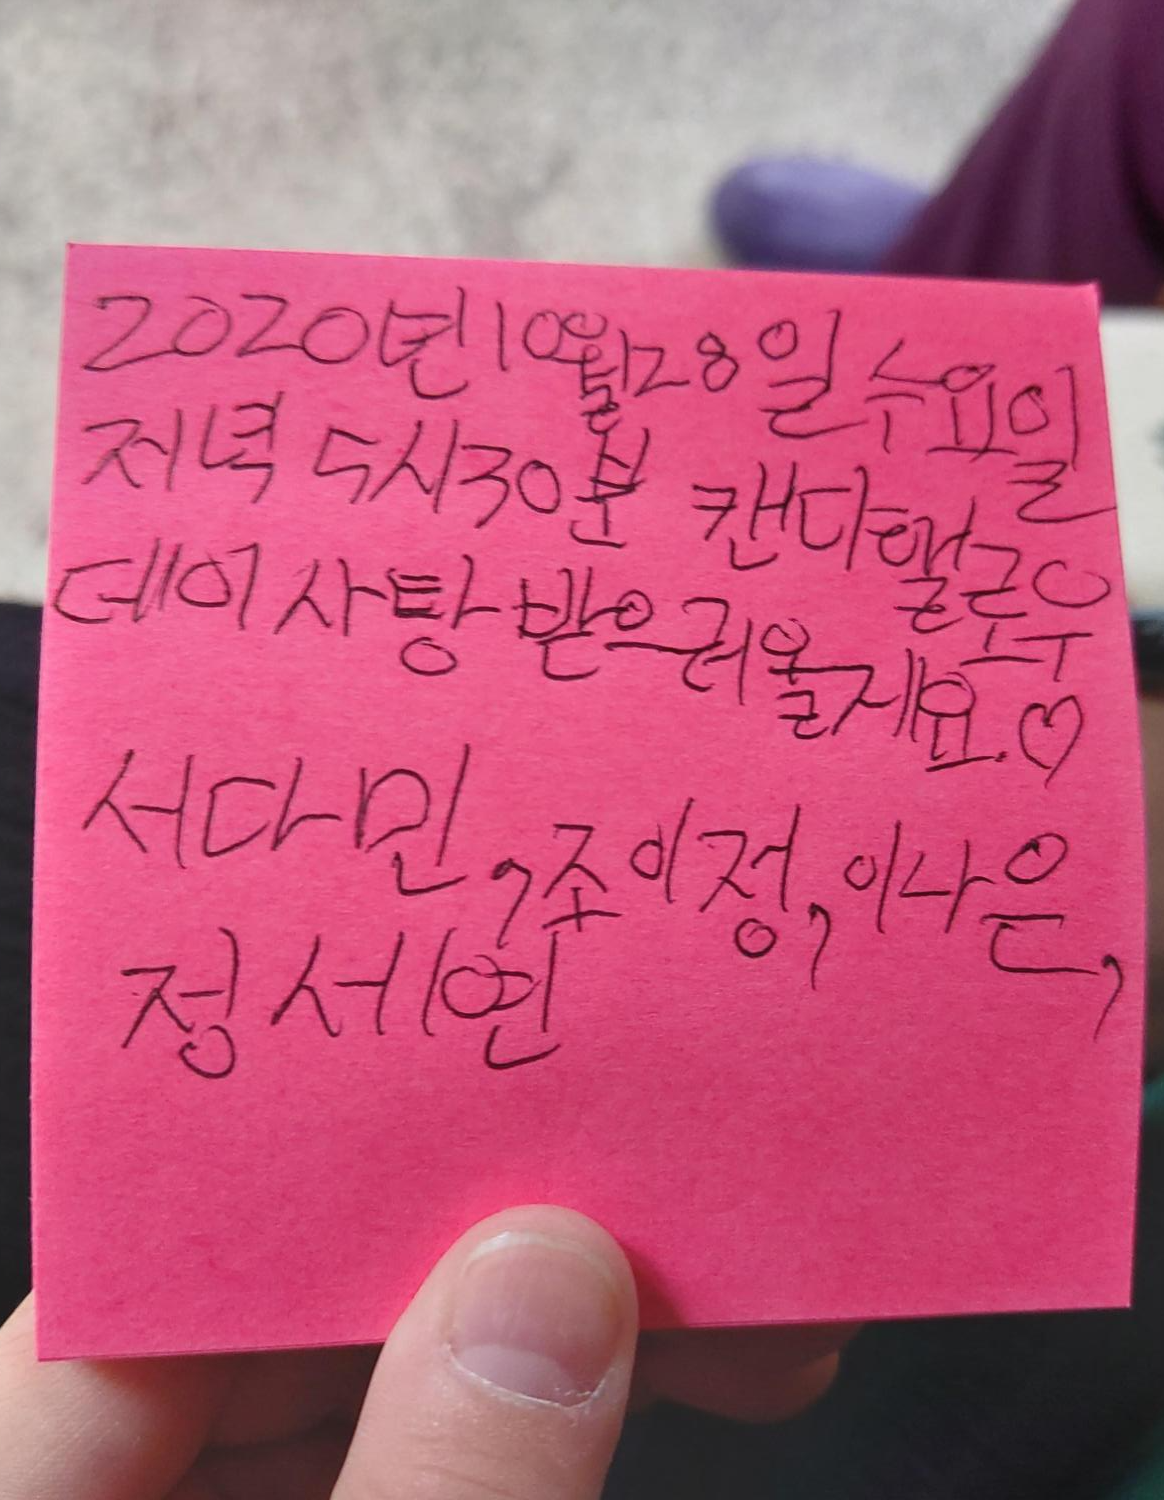 2020년 10월 28일 수요일
저녁 5시30분 캔디핼로우
데이 사탕 받으러 올게요.♡
서다민, 조이정, 이나은,
정서연